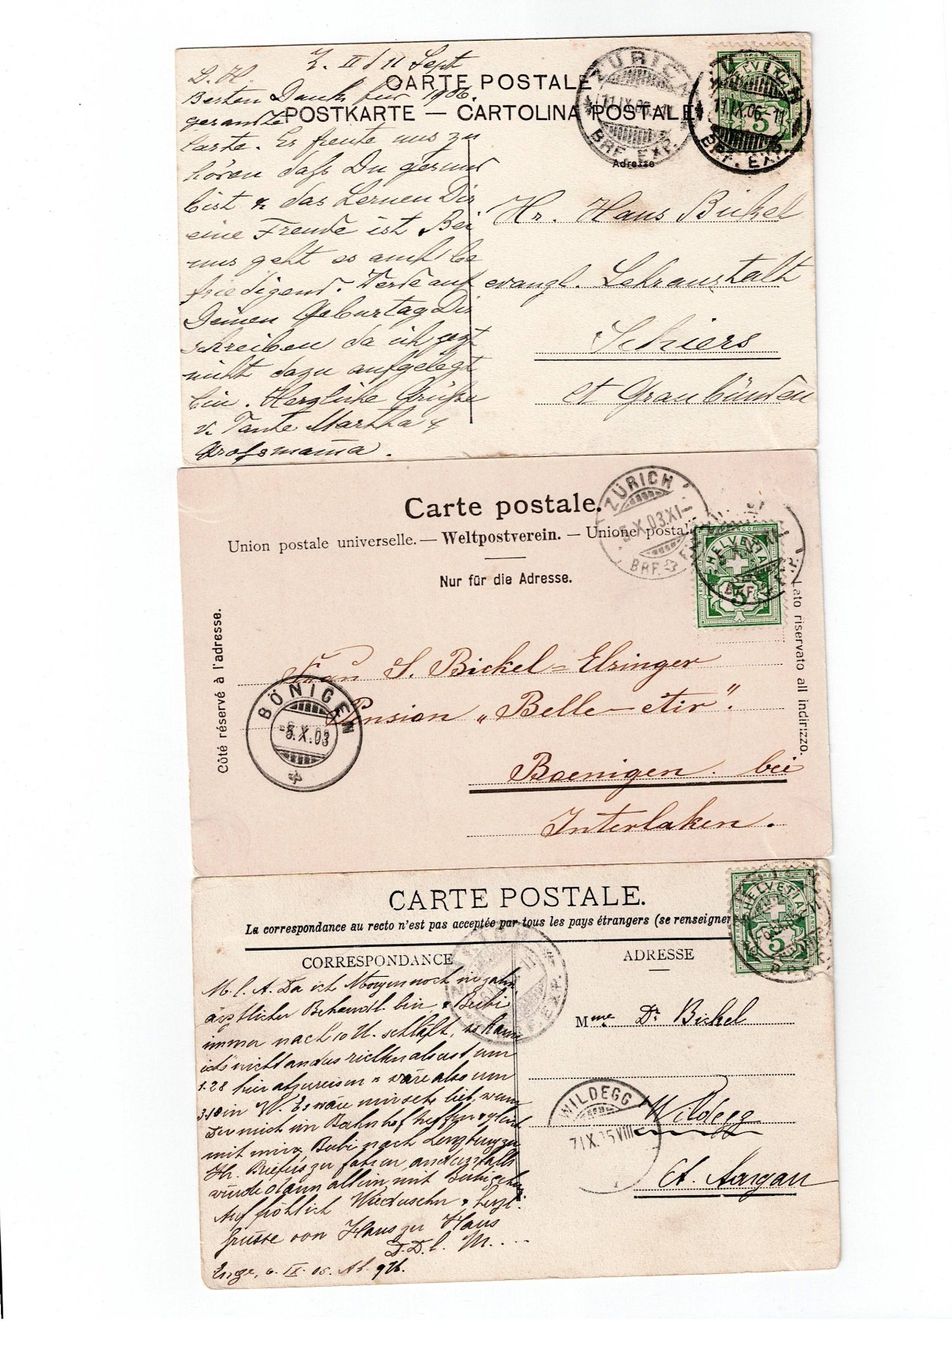 Z. II / 11 Sept
1906.
L. H.
CARTE POSTALE
POSTKARTE — CARTOLINA POSTALE
Adresse
ZÜRICH
11.IX.06.-11
BRF. EXP.
ZÜRICH
11.IX.06.-11
BRF. EXP.
HELVETIA
5
Besten Dank für
gesandte
Karte. Es freute uns zu
hören daß Du gesund
bist & das Lernen Dir
eine Freude ist Bei
uns geht es auch be
friedigend. Werde auf
Deinen Geburtag Dir
schreiben da ich jetzt
nicht dazu aufgelegt
bin. Herzliche Grüße
v. Tante Martha &
Großmama.
Hr. Hans Bickel
evangl. Lehranstalt
Schiers
Ct Graubünden
Carte postale.
Union postale universelle. — Weltpostverein. — Unione postale
Nur für die Adresse.
Côté réservé à l'adresse.
Lato riservato all indirizzo.
ZÜRICH
5.X.03.XI
BRF.
HELVETIA
5
BÖNIGEN
-5.X.03
Frau S. Bickel-Elsinger
Pension „Belle-Air".
Boenigen bei
Interlaken.
CARTE POSTALE.
La correspondance au recto n'est pas acceptée par tous les pays étrangers (se renseigner
CORRESPONDANCE
ADRESSE
HELVETIA
5
M. l. A. Da ich Morgen noch in
ärztlicher Behandl. bin & Beibi
immer nach 10 U. schläft, so kann
ich's nicht anders richten als erst um
1.28 hier abzureisen & wäre also um
3.10 in W. Es wäre mir sehr lieb, wenn
Du mich im Bahnhof treffen &
mit mir & Bubi nach Lenzburg zu
Hr. zu fahren andernfalls
würde ich dann allein mit Bubi gehen
Auf fröhlich Wiedersehn & herzl.
Grüsse von Haus zu Haus
D. D. l. M. ...
Enge, 6. IX. 05. Ab. 9 Uh.
Mme Dr Bickel
Wildegg
Ct. Aargau
WILDEGG
7.IX.05.VIII